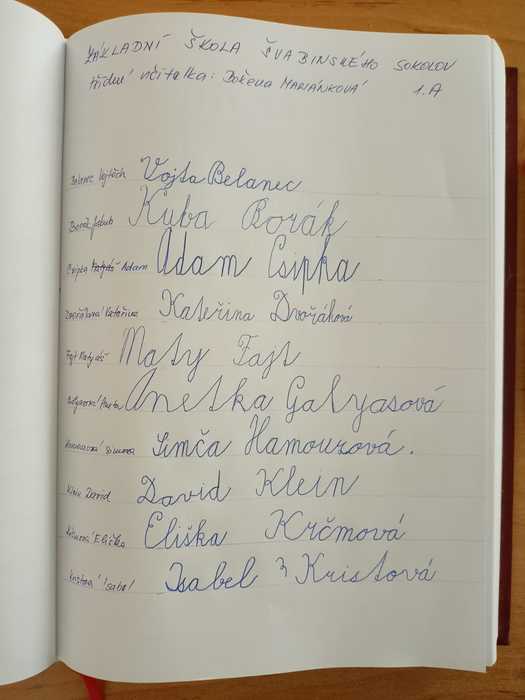 ZÁKLADNÍ ŠKOLA ŠVABINSKÉHO SOKOLOV
třídní učitelka: Božena MARIÁNKOVÁ 1.A
Belanec Vojtěch Vojta Belanec
Borák Jakub Kuba Borák
Csipka Matyáš Adam Adam Csipka
Dvořáková Kateřina Kateřina Dvořáková
Fajt Matyáš Maty Fajt
Galyasová Aneta Anetka Galyasová
Hamouzová Simona Simča Hamouzová.
Klein David David Klein
Krčmová Eliška Eliška Krčmová
Kristová Isabel Isabel Kristová